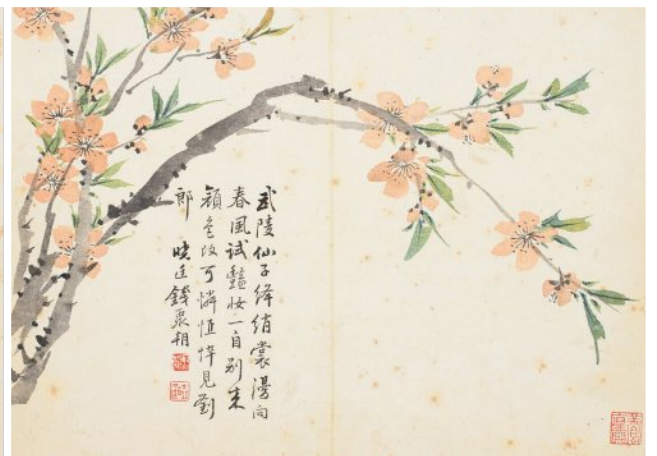 武陵仙子絳綃裳漫向
春風試豔妝一自別来
顔色改可憐憔悴見劉
郎 曉廷錢聚朝